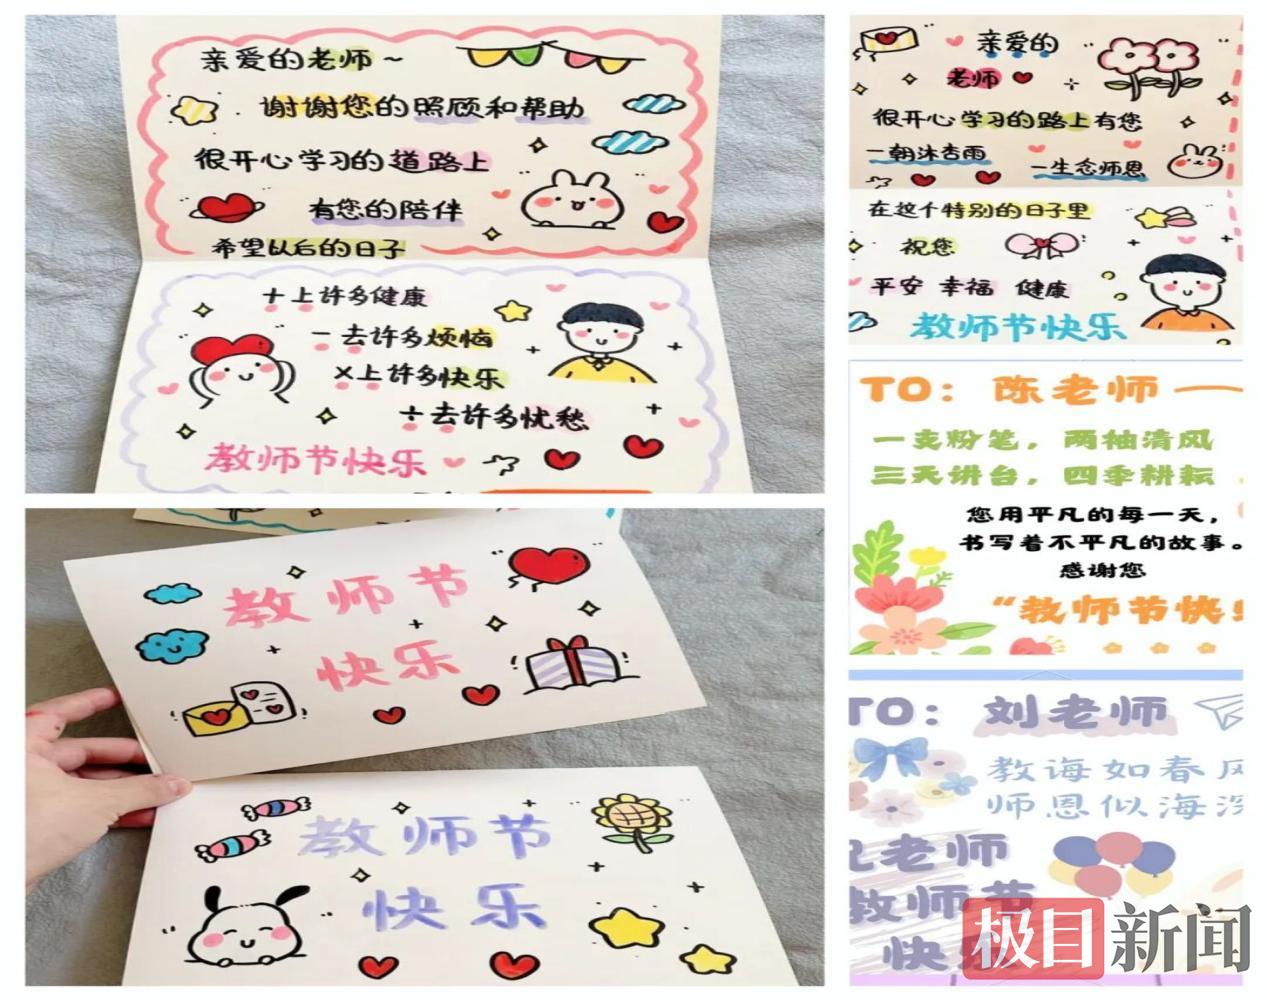 亲爱的老师～
谢谢您的照顾和帮助
很开心学习的道路上
有您的陪伴
希望以后的日子
十上许多健康
一去许多烦恼
×上许多快乐
÷去许多忧愁
教师节快乐
教师节
快乐
教师节
快乐
亲爱的
老师
很开心学习的路上有您
一朝沐杏雨
一生念师恩
在这个特别的日子里
祝您
平安 幸福 健康
教师节快乐
TO：陈老师——
一支粉笔，两袖清风
三尺讲台，四季耕耘
您用平凡的每一天，
书写着不平凡的故事。
感谢您
“教师节快
TO：刘老师
教诲如春风
师恩似海深
老师
教师节
快乐
极目新闻